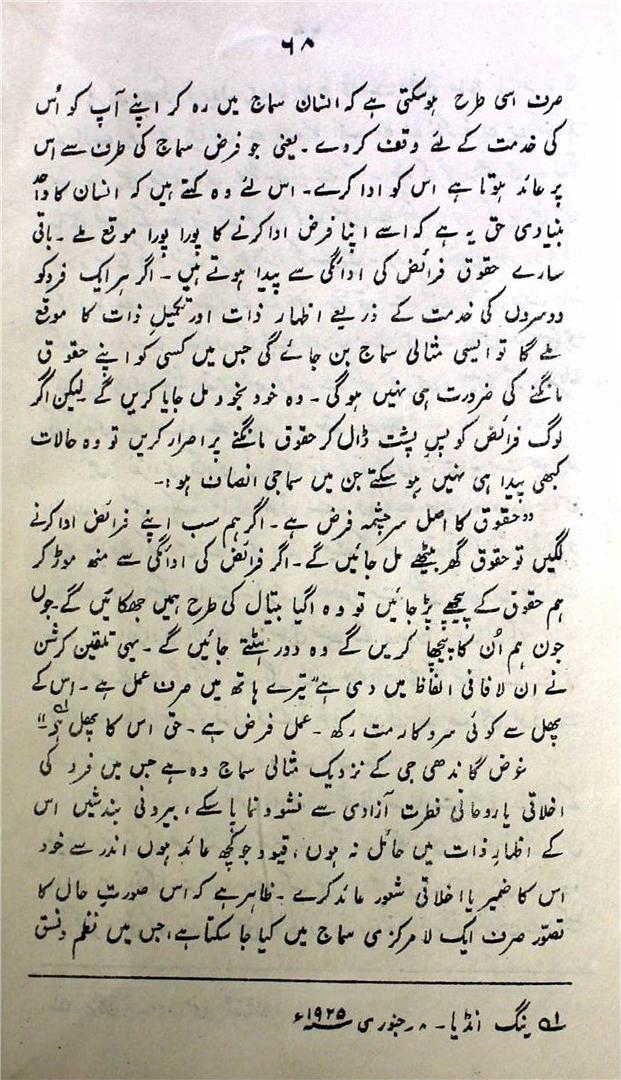 ۶۸
صرف اسی طرح ہوسکتی ہے کہ انسان سماج میں رہ کر اپنے آپ کو اُس
کی خدمت کے لئے وقف کردے۔ یعنی جو فرض سماج کی طرف سے اس
پر عائد ہوتا ہے اس کو ادا کرے۔ اس لئے وہ کہتے ہیں کہ انسان کا واحد
بنیادی حق یہ ہے کہ اسے اپنا فرض ادا کرنے کا پورا پورا موقع ملے ۔ باقی
سارے حقوق فرائض کی ادائگی سے پیدا ہوتے ہیں ۔ اگر ہر ایک فرد کو
دوسروں کی خدمت کے ذریعے اظہار ذات اور تکمیلِ ذات کا موقع
ملے گا تو ایسی مثالی سماج بن جائے گی جس میں کسی کو اپنے حقوق
مانگنے کی ضرورت ہی نہیں ہوگی ۔ وہ خود بخود مل جایا کریں گے لیکن اگر
لوگ فرائض کو پسِ پشت ڈال کر حقوق مانگنے پر اصرار کریں تو وہ حالات
کبھی پیدا ہی نہیں ہو سکتے جن میں سماجی انصاف ہو :۔
"حقوق کا اصل سرچشمہ فرض ہے ۔ اگر ہم سب اپنے فرائض ادا کرنے
لگیں تو حقوق گھر بیٹھے مل جائیں گے ۔ اگر فرائض کی ادائگی سے منھ موڑ کر
ہم حقوق کے پیچھے پڑ جائیں تو وہ اگیا بیتال کی طرح ہمیں جھکائیں گے جوں
جون ہم اُن کا پیچھا کریں گے وہ دور ہٹتے جائیں گے ۔ یہی تلقین کرشن
نے ان لافانی الفاظ میں دی ہے "تیرے ہاتھ میں صرف عمل ہے ۔ اس کے
پھل سے کوئی سروکار مت رکھ ۔ عمل فرض ہے ۔ حق اس کا پھل ہے" ؂۱
غرض گاندھی جی کے نزدیک مثالی سماج وہ ہے جس میں فرد کی
اخلاقی یا روحانی فطرت آزادی سے نشوونما پا سکے ، بیرونی بندشیں اس
کے اظہارِ ذات میں حائل نہ ہوں ، قیود جو کچھ عائد ہوں اندر سے خود
اس کا ضمیر یا اخلاقی شعور عائد کرے ۔ ظاہر ہے کہ اس صورتِ حال کا
تصوّر صرف ایک لامرکزی سماج میں کیا جا سکتا ہے ، جس میں نظم و نسق
؂۱ ینگ انڈیا ۔ ۸ رجنوری ۱۹۲۵ء